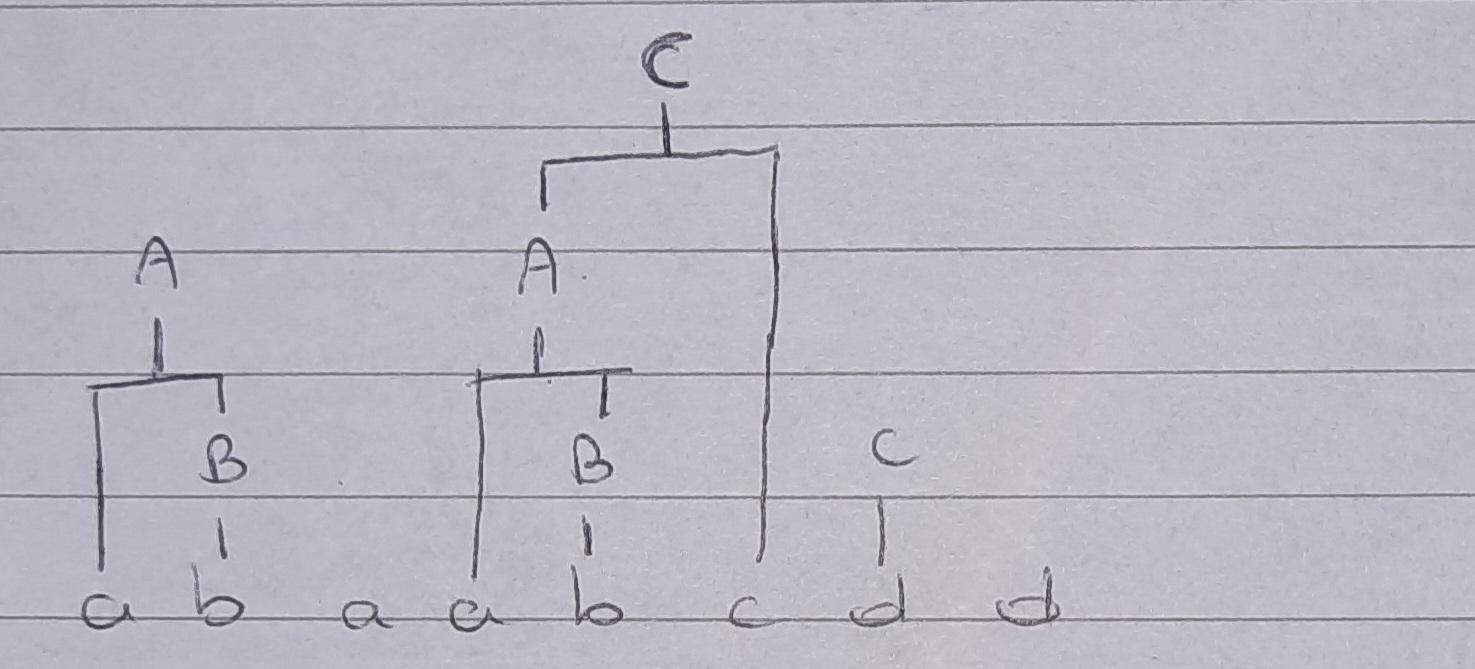 C
A A
B B C
a b a a b c d d